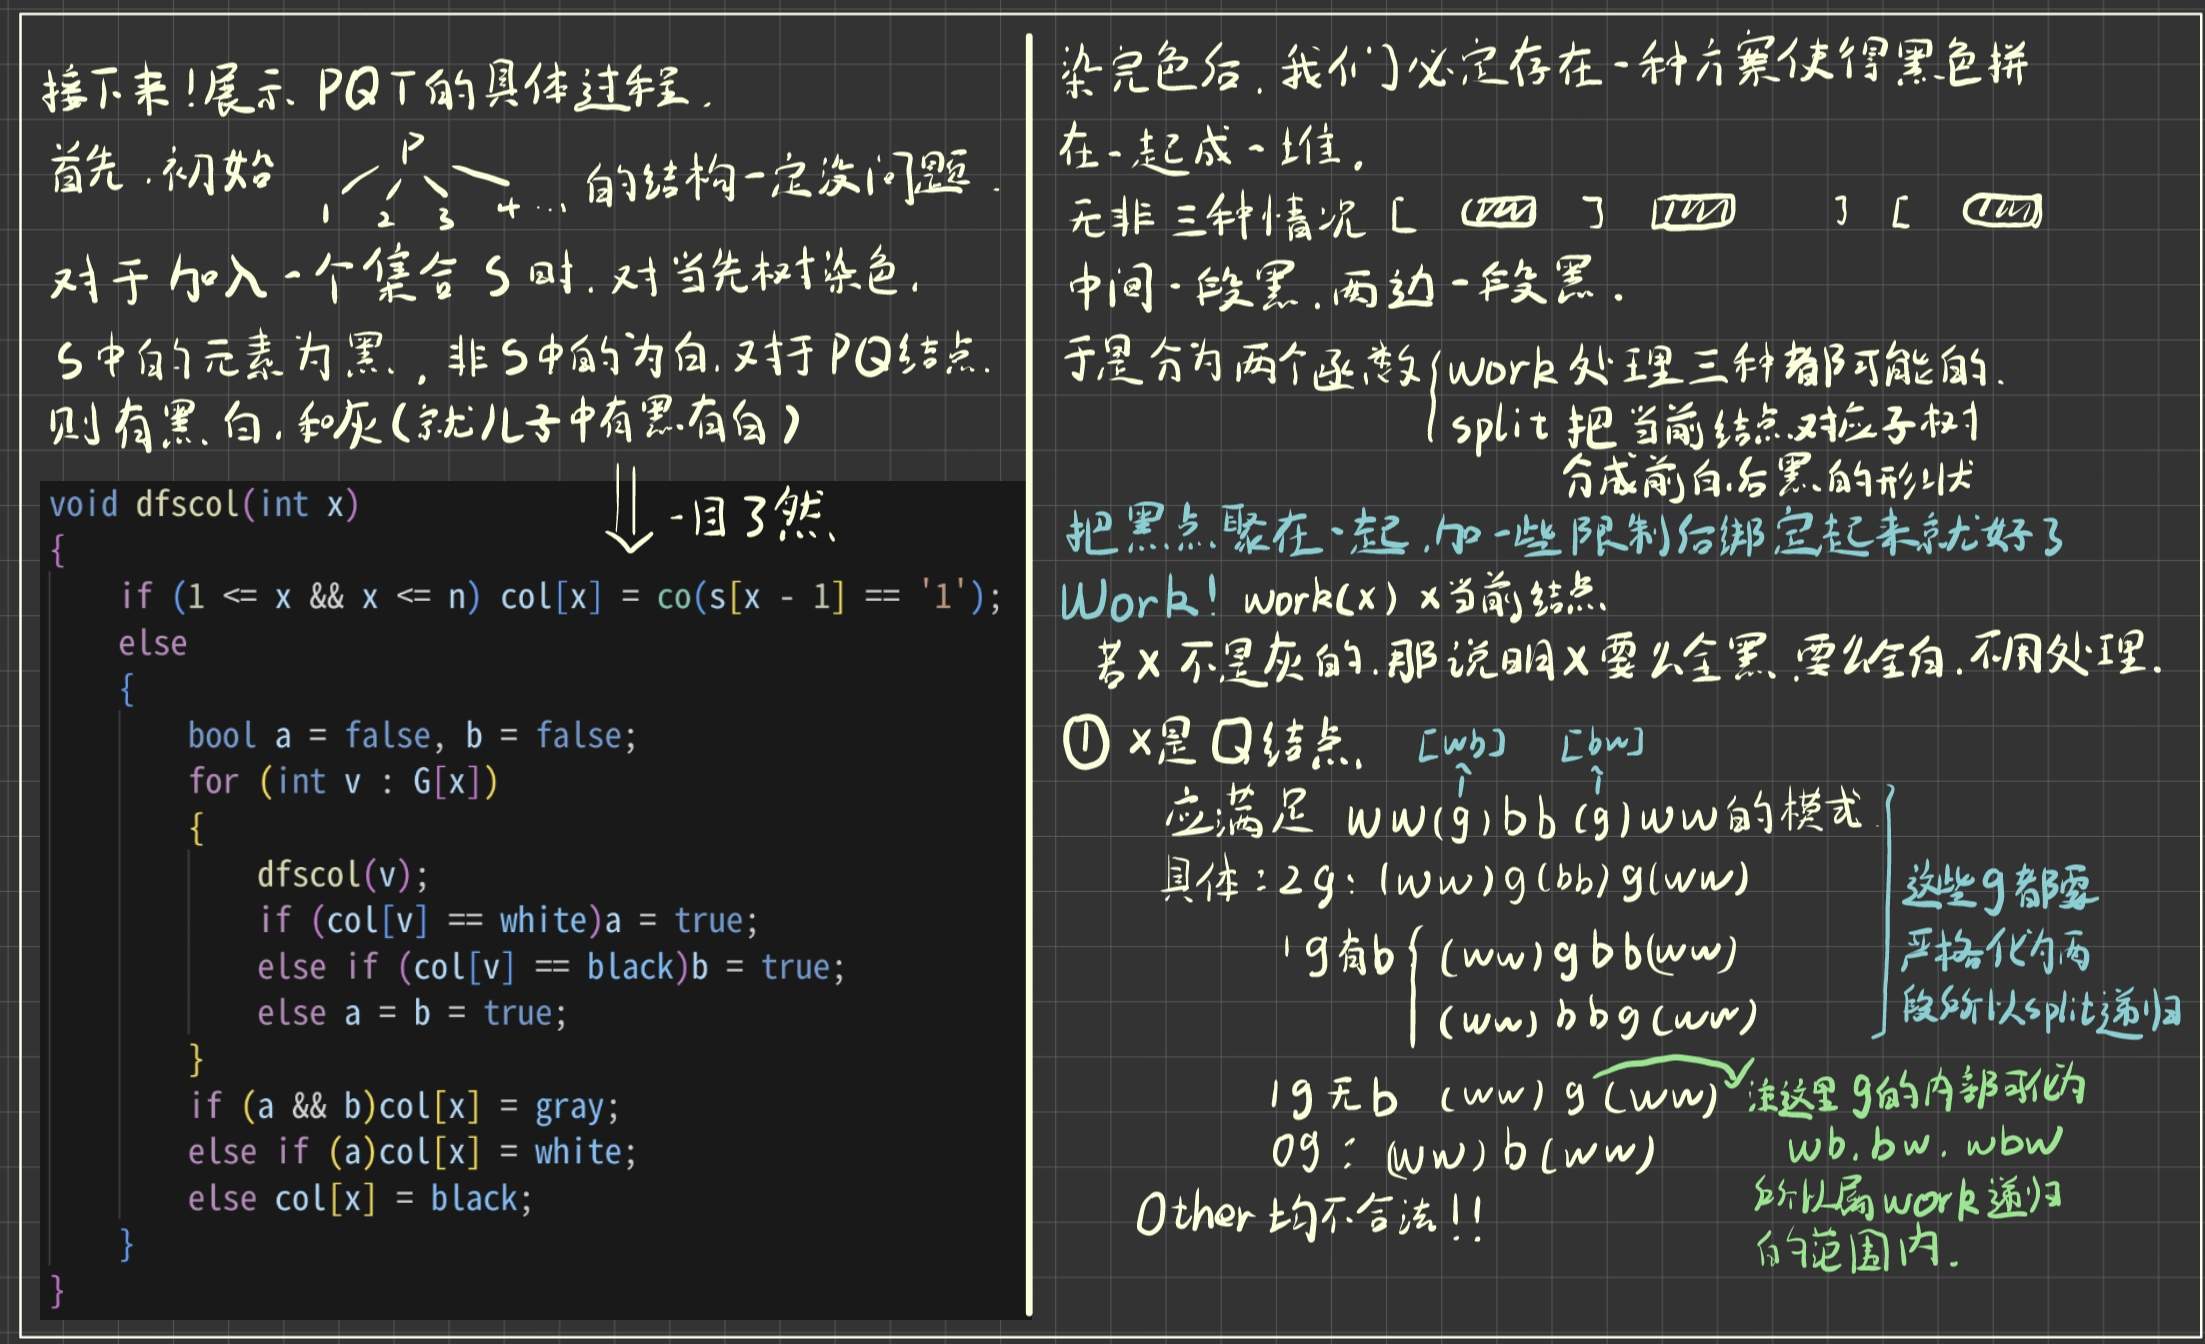 接下来!展示 PQT的具体过程.
首先.初始
P
1 2 3 4 ...
的结构一定没问题.
对于加入一个集合S时.对当先树染色.
S中的元素为黑,非S中的为白.对于PQ结点.
则有黑.白.和灰(就儿子中有黑有白)
一目了然
void dfscol(int x)
{
if (1 <= x && x <= n) col[x] = co(s[x - 1] == '1');
else
{
bool a = false, b = false;
for (int v : G[x])
{
dfscol(v);
if (col[v] == white)a = true;
else if (col[v] == black)b = true;
else a = b = true;
}
if (a && b)col[x] = gray;
else if (a)col[x] = white;
else col[x] = black;
}
}
染完色后.我们必定存在一种方案使得黑色拼
在一起成一堆。
无非三种情况 [ ] ] [
中间一段黑.两边一段黑.
于是分为两个函数{work处理三种都可能的.
split 把当前结点对应子树
分成前白后黑的形状
把黑点聚在一起.加一些限制后绑定起来就好了
Work! work(x) x当前结点
若x不是灰的.那说明x要么全黑.要么全白.不用处理.
① x是Q结点. [wb] [bw]
应满足 ww(g)bb(g)ww的模式.
具体:2g:(ww)g(bb)g(ww)
1g有b{(ww)gbb(ww)
(ww)bbg(ww)
这些g都要
严格化为两
段所以split递归
1g无b (ww)g(ww)
注这里g的内部可化为
wb.bw.wbw
所以属work递归
的范围内.
0g:(ww)b(ww)
Other均不合法!!